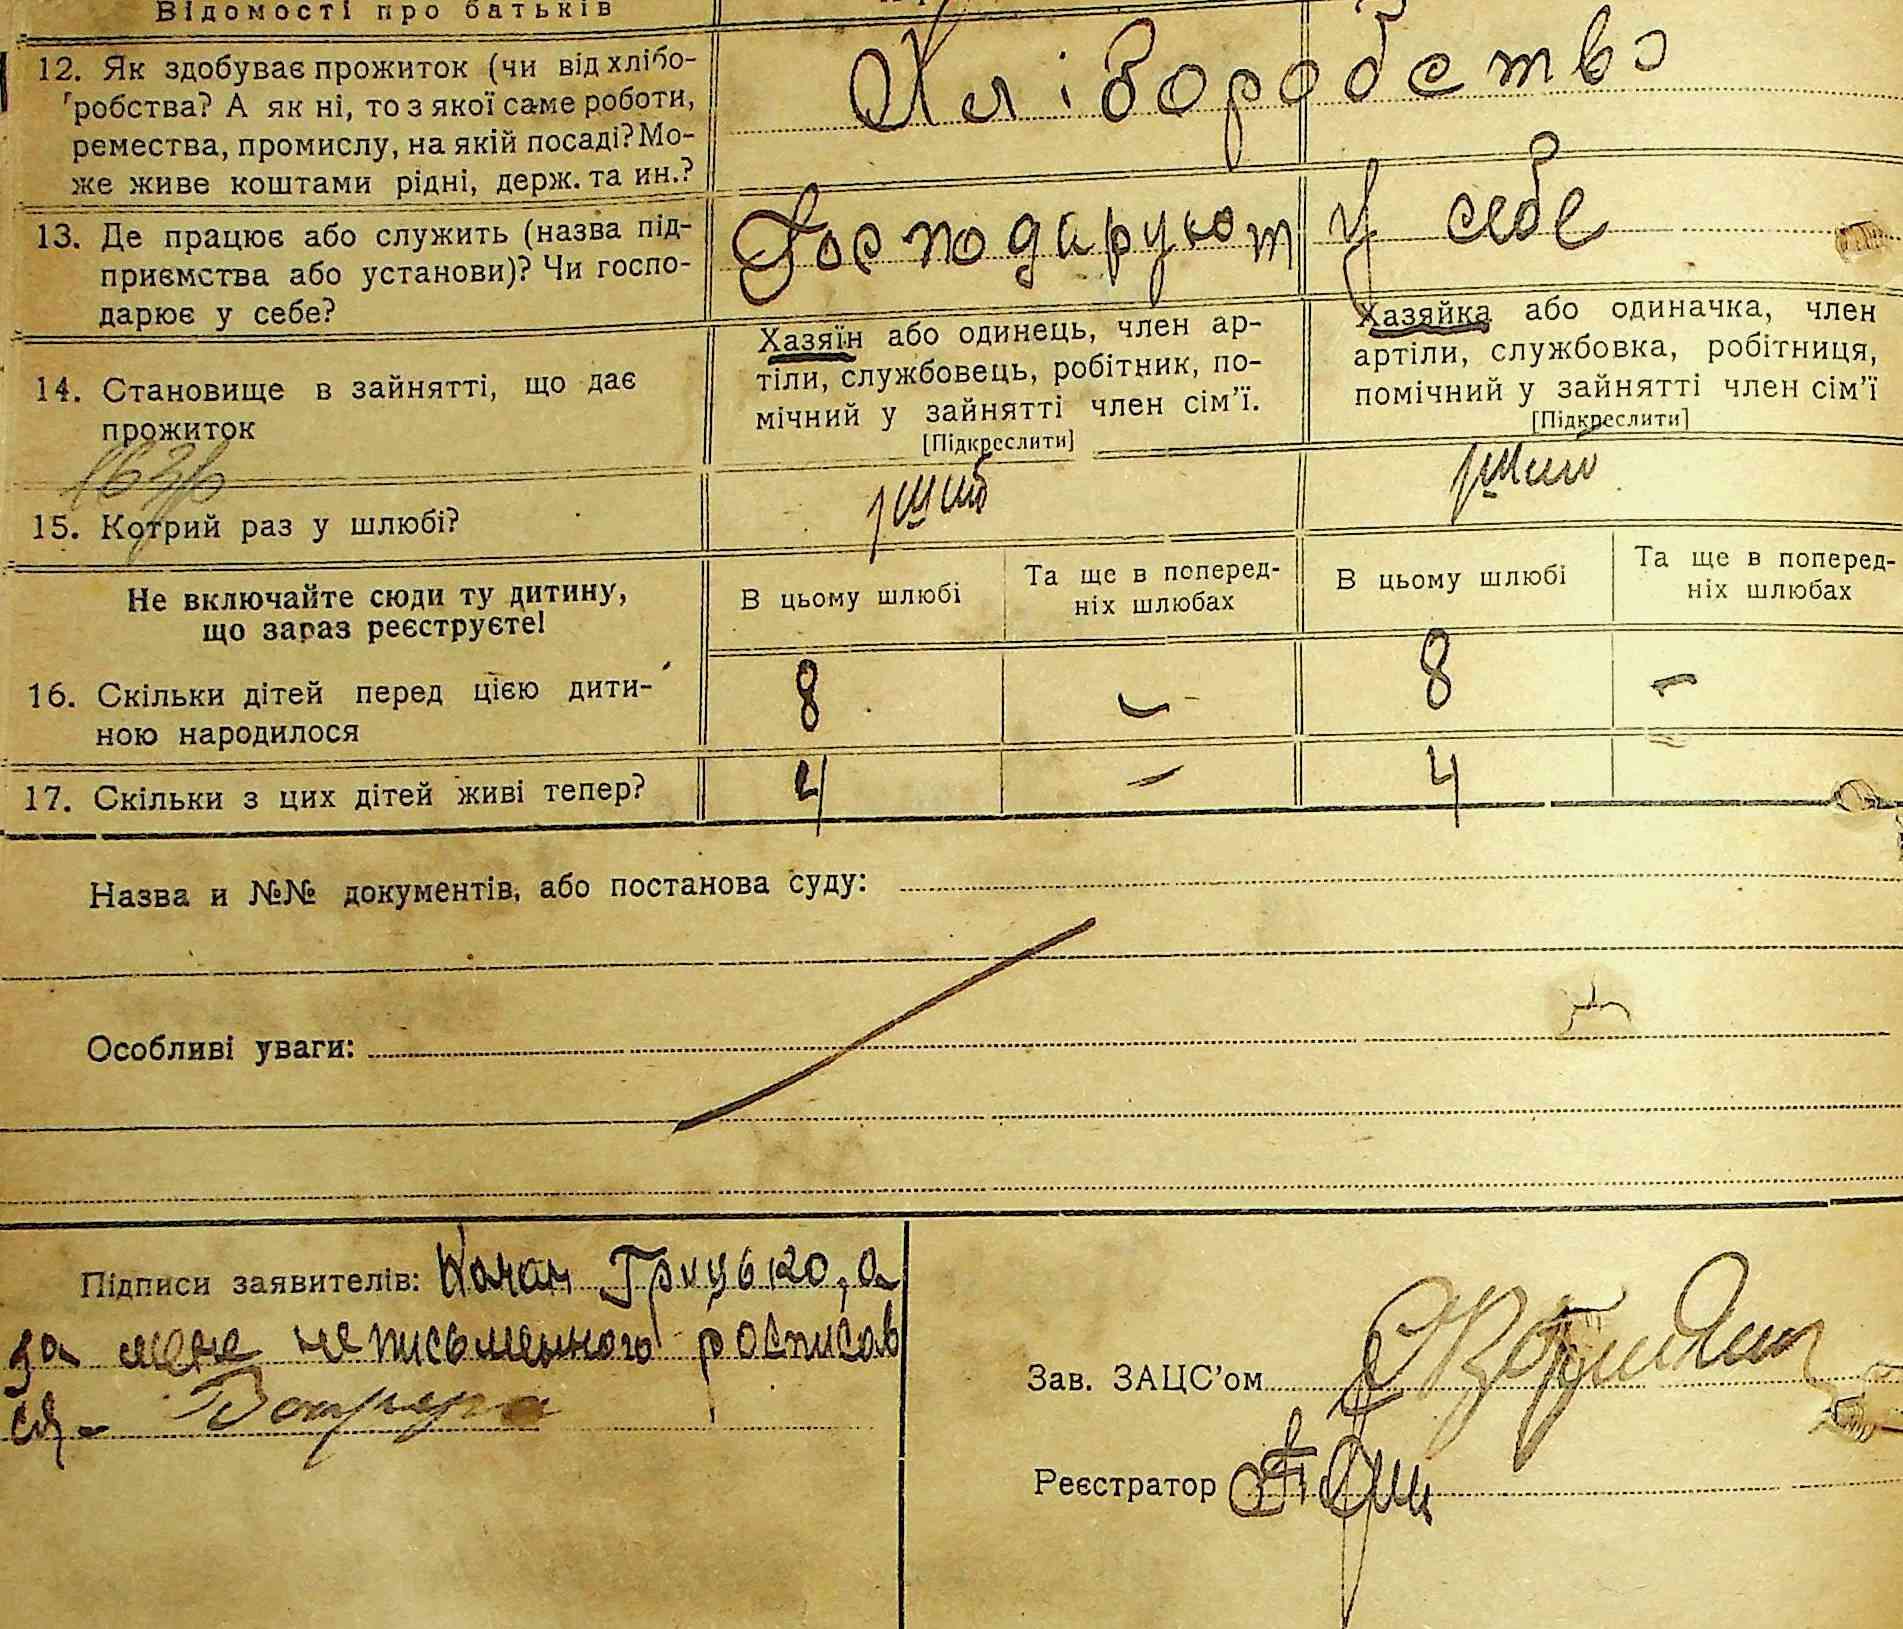 Відомості про батьків
12. Як здобуває прожиток (чи від хлібо-
робства? А як ні, то з якої саме роботи,
ремества, промислу, на якій посаді? Мо-
же живе коштами рідні, держ. та ин.?
Хліборобство
13. Де працює або служить (назва під-
приємства або установи)? Чи госпо-
дарює у себе?
Господарують у себе
14. Становище в зайнятті, що дає
прожиток
Хазяїн або одинець, член ар-
тіли, службовець, робітник, по-
мічний у зайнятті член сім'ї.
[Підкреслити]
Хазяйка або одиначка, член
артіли, службовка, робітниця,
помічний у зайнятті член сім'ї
[Підкреслити]
15. Котрий раз у шлюбі?
Не включайте сюди ту дитину,
що зараз реєструєте!
В цьому шлюбі
Та ще в поперед-
ніх шлюбах
В цьому шлюбі
Та ще в поперед-
ніх шлюбах
16. Скільки дітей перед цією дити-
ною народилося
8 - 8 -
17. Скільки з цих дітей живі тепер?
4 - 4 -
Назва и №№ документів, або постанова суду:
Особливі уваги:
Підписи заявителів: Качан Грицько, а
за мене неписьменного росписав
ся -
Зав. ЗАЦС'ом
Реєстратор